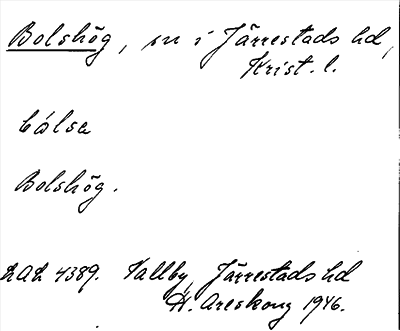 Bolshög, sn i Järrestads hd,
Krist. l.
bólsa
Bolshög.
LAL 4389. Vallby, Järrestads hd
H. Areskoug 1946.